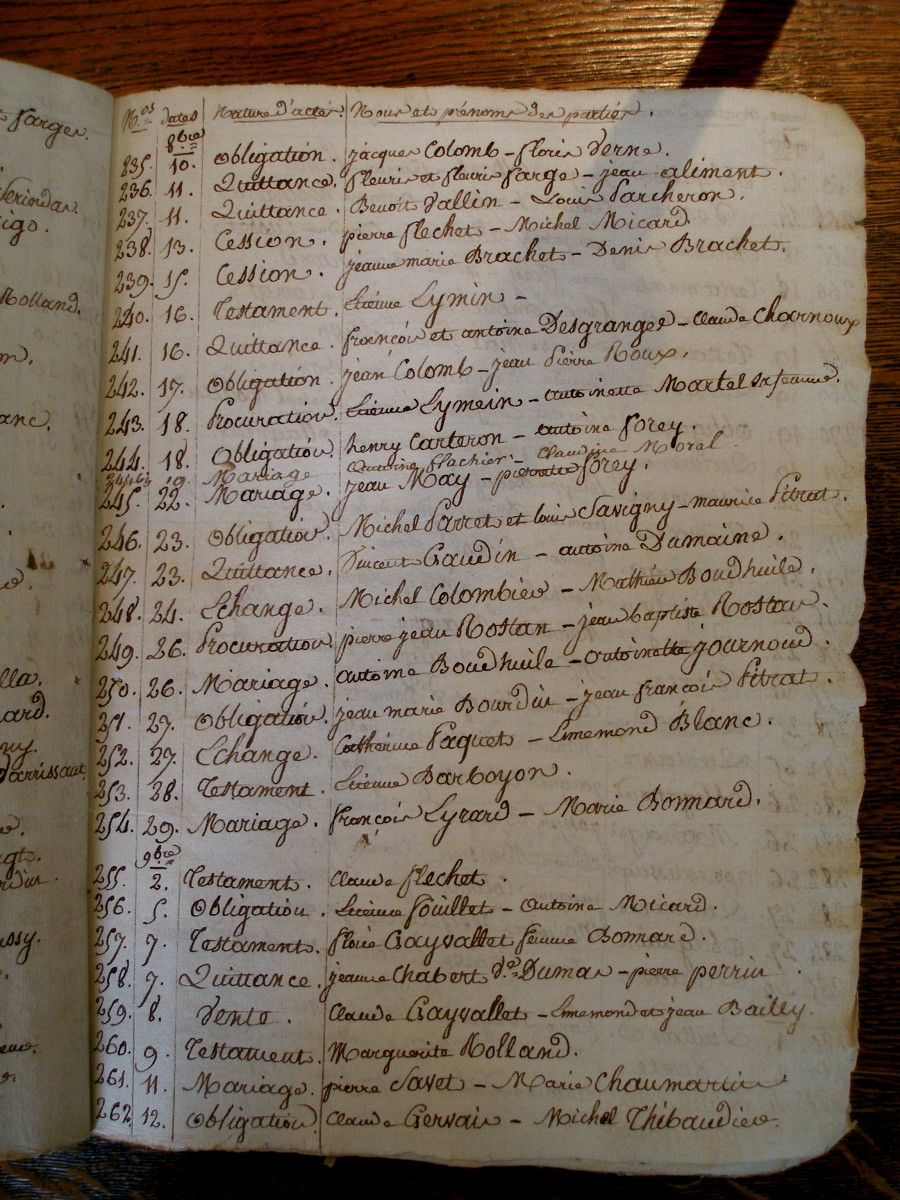 farge.
Rolland.
N.os dates Nature d'actes. Noms et prénoms des parties.
8bre
235. 10. Obligation. jacques Colomb - floris Verne.
236. 11. Quittance. fleuris et fleuris farge - jean aliment.
237. 11. Quittance. Benoit Vallin - Louis Parcheron.
238. 13. Cession. pierre flechet - Michel Micard
239. 15. Cession. jeanne marie Brachet - Denis Brachet.
240. 16. Testament. Etienne Lymin -
241. 16. Quittance. françois et antoine Desgranges - Claude Charnoux
242. 17. Obligation. jean Colomb - jean Pierre Roux.
243. 18. Procuration. Etienne Lymein - antoinette Martel sa femme.
244. 18. Obligation. henry Carteron - antoine forey.
19. Mariage Antoine flachier - Claudine Moral
245. 22. Mariage. jean May - pierrette forey.
246. 23. Obligation. Michel Parret et louis Savigny - maurice Pitrat.
247. 23. Quittance. Vincent Gaudin - antoine Dumaine.
248. 24. Echange. Michel Colombier - Mathieu Boudhuile.
249. 26. Procuration pierre jean Rostan - jean baptiste Rostan.
250. 26. Mariage. antoine Boudhuile - antoinette journoud.
251. 27. Obligation. jean marie Bourdin - jean françois Pitrat.
252. 27. Echange. Catherine Paquet - Ennemond Blanc.
253. 28. Testament. Etienne Barboyon.
254. 29. Mariage. françois Lyrard - Marie Bonnard.
9bre
255. 2. Testament. Claude flechet.
256. 5. Obligation. Etienne fouillet - Antoine Micard.
257. 7. Testament. florie Gayvallet femme Bonnard.
258. 7. Quittance. jeanne Chabert Dumas - pierre perrin.
259. 8. Vente. Claude Gayvallet - Ennemond et jean Bailly.
260. 9. Testament. Marguerite Rolland.
261. 11. Mariage. pierre Savet - Marie Chaumartin
262. 12. Obligation. Claude Gervais - Michel Thibaudier.